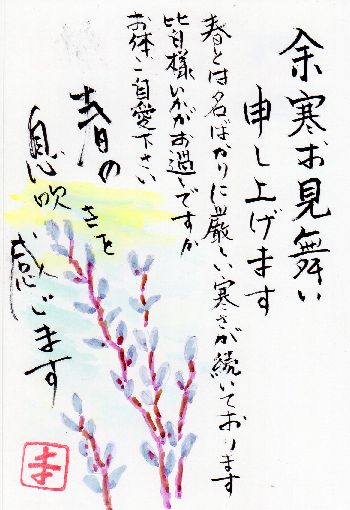 余寒お見舞い
申し上げます
春とは名ばかりに厳しい寒さが続いております
皆様いかがお過しですか
お体ご自愛下さい
春の
息吹きを
感じます